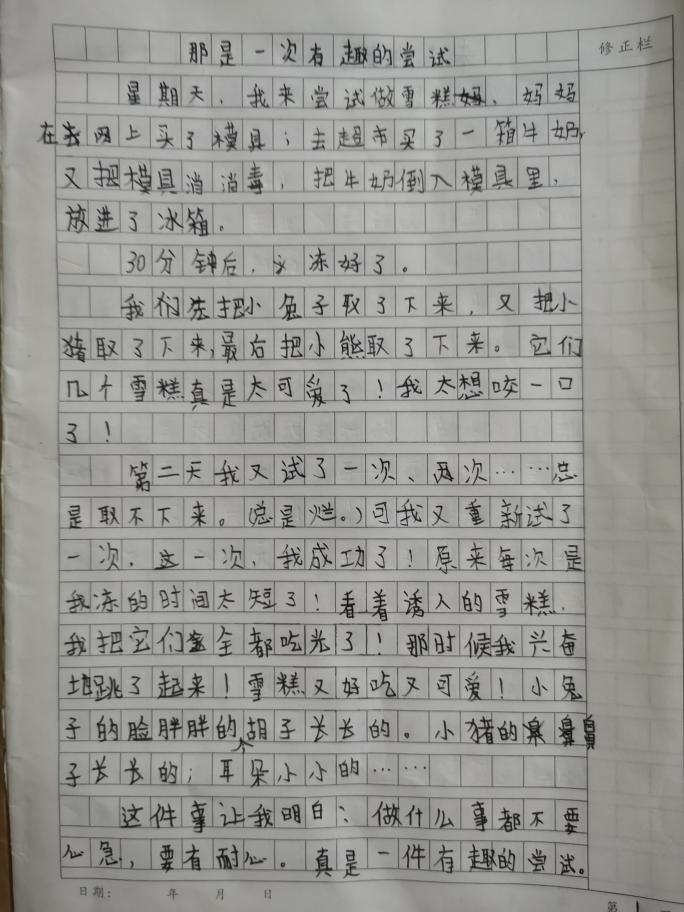 那是一次有趣的尝试
修正栏
星期天，我来尝试做雪糕，妈妈
在网上买了模具；去超市买了一箱牛奶，
又把模具消消毒，把牛奶倒入模具里，
放进了冰箱。
30分钟后，冻好了。
我们先把小兔子取了下来，又把小
猪取了下来，最后把小熊取了下来。它们
几个雪糕真是太可爱了！我太想咬一口
了！
第二天我又试了一次、两次……总
是取不下来。（总是烂。）可我又重新试了
一次，这一次，我成功了！原来每次是
我冻的时间太短了！看着诱人的雪糕，
我把它们全都吃光了！那时候我兴奋
地跳了起来！雪糕又好吃又可爱！小兔
子的脸胖胖的胡子长长的。小猪的鼻
子长长的；耳朵小小的……
这件事让我明白：做什么事都不要
心急，要有耐心。真是一件有趣的尝试。
日期： 年 月 日
第 1